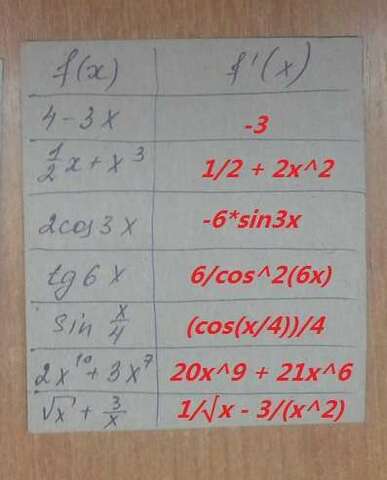 f(x) f'(x)
4 - 3x -3
1/2 x + x^3 1/2 + 2x^2
2cos3x -6*sin3x
tg6x 6/cos^2(6x)
sin x/4 (cos(x/4))/4
2x^10 + 3x^7 20x^9 + 21x^6
√x + 3/x 1/√x - 3/(x^2)